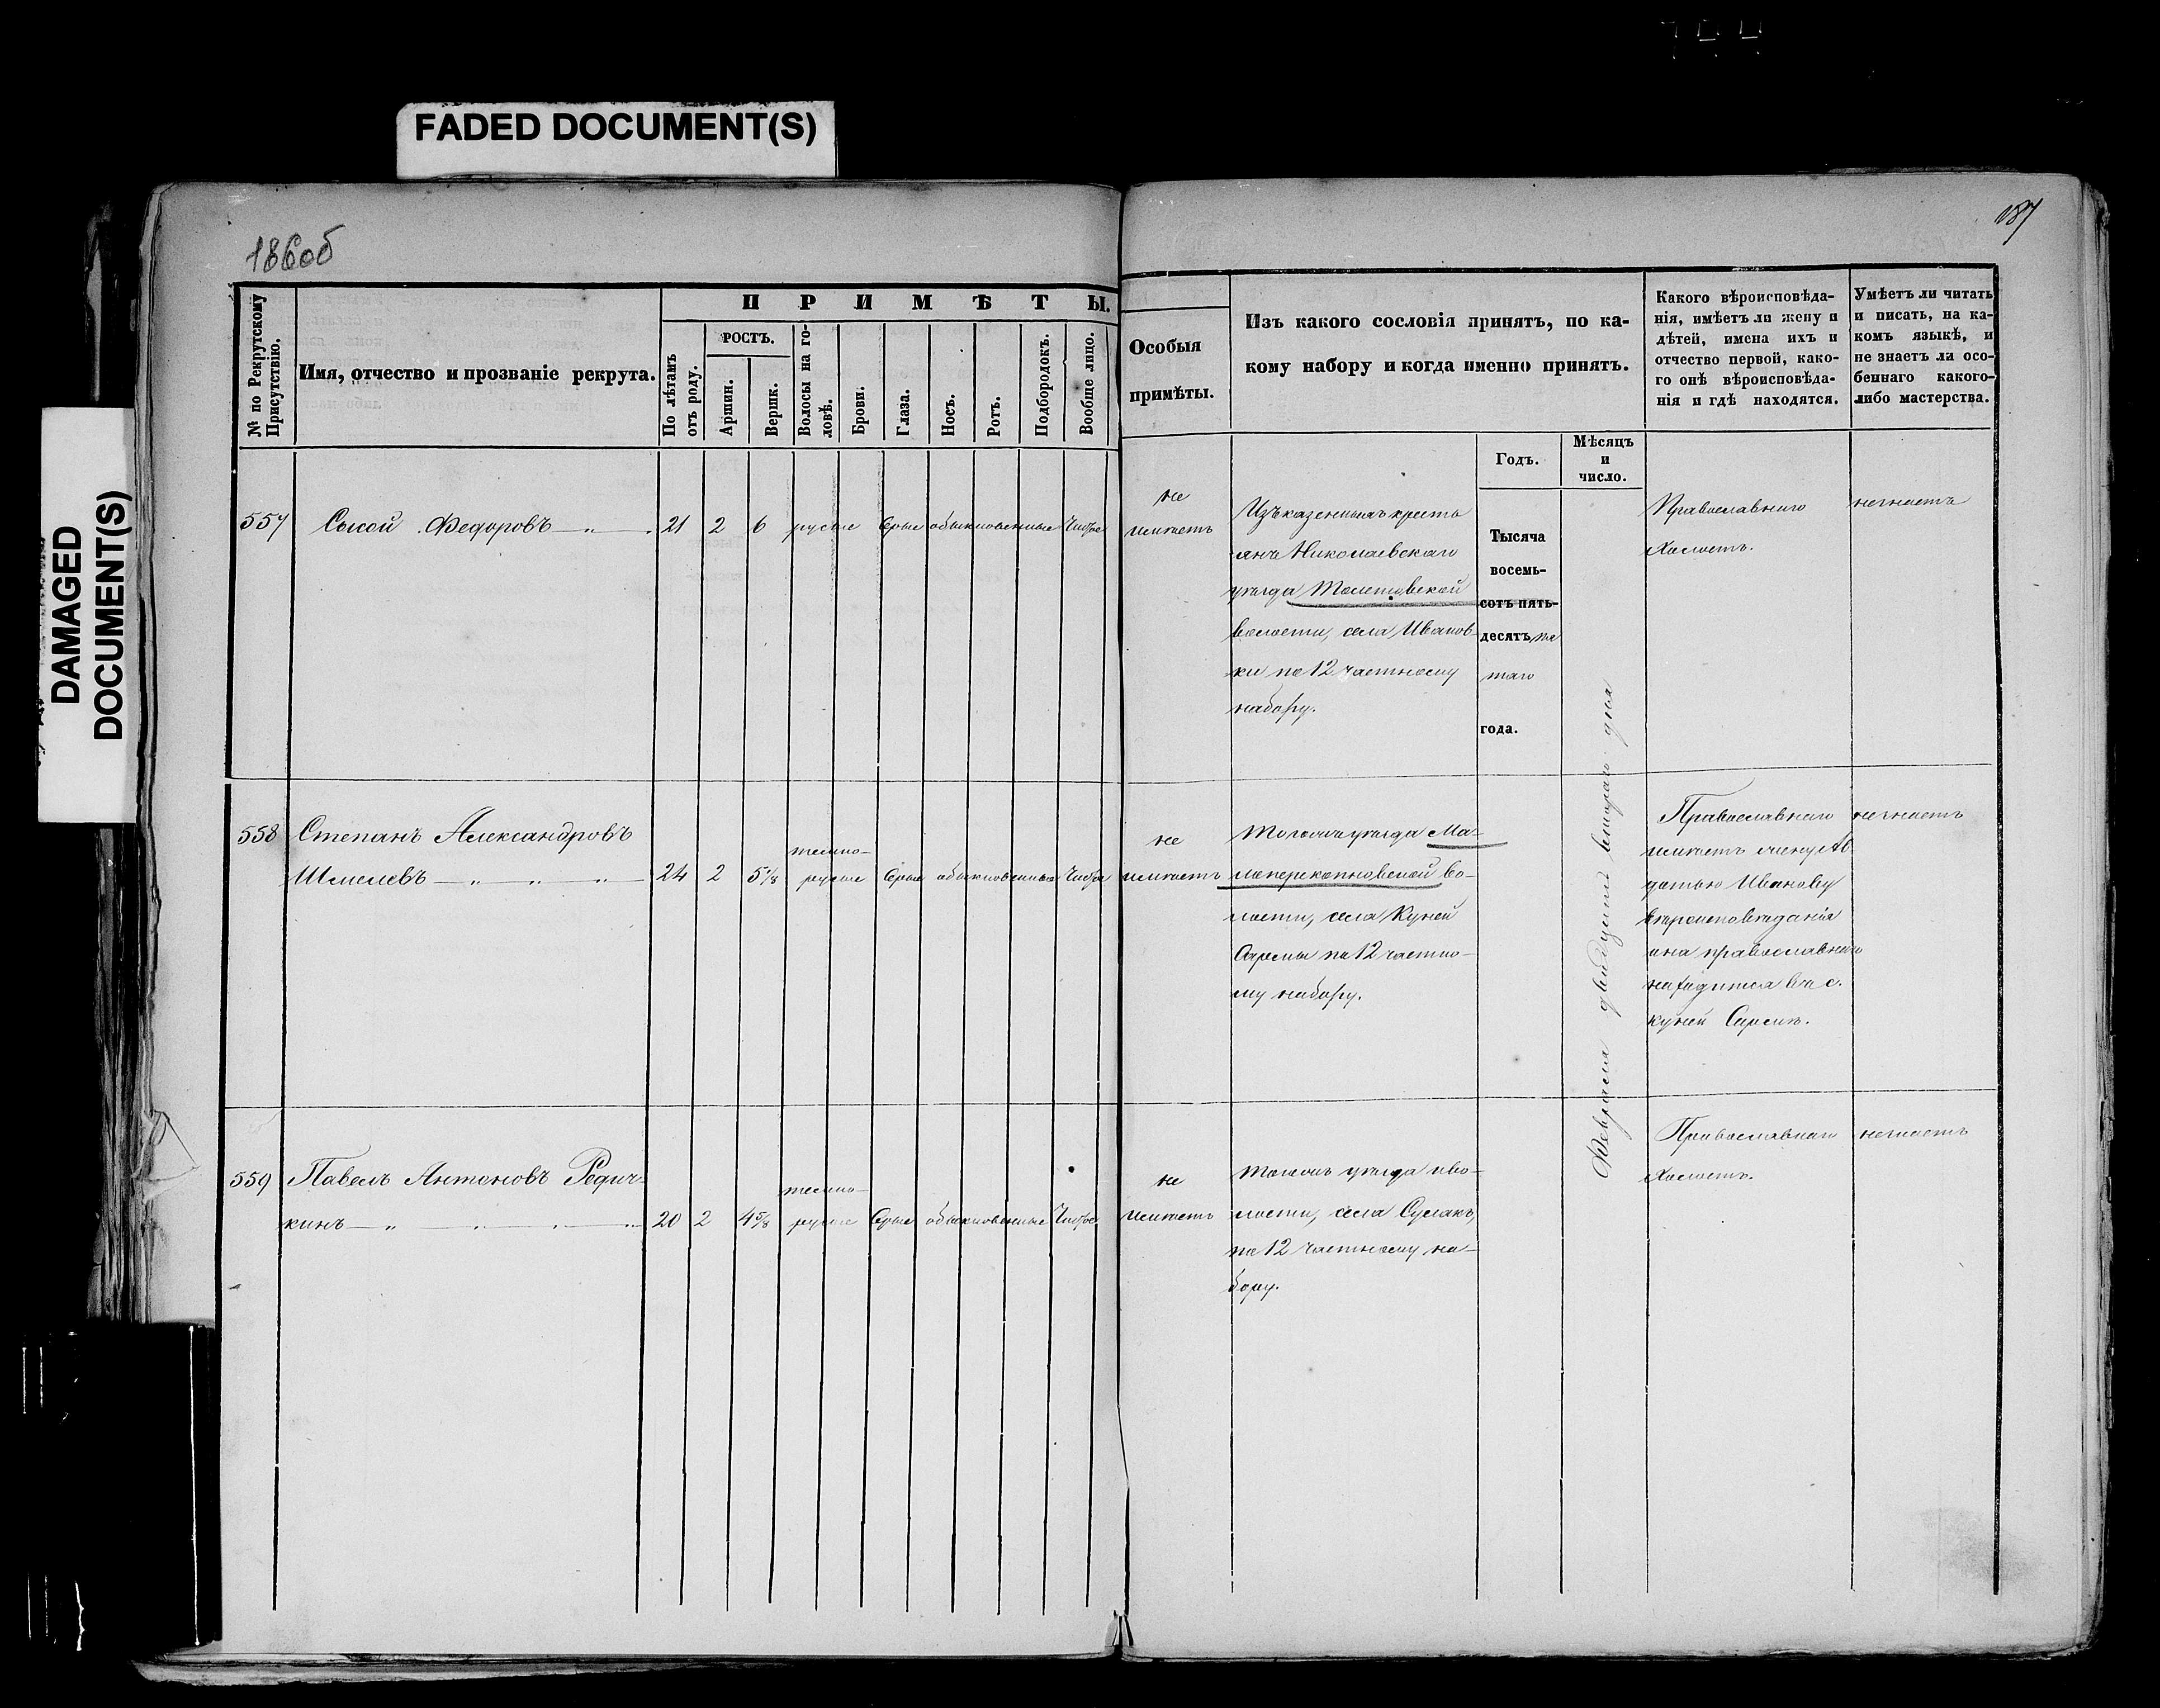 FADED DOCUMENT(S)
DAMAGED
DOCUMENT(S)
186об
187
№ по Рекрутскому
Присутствію.
Имя, отчество и прозваніе рекрута.
ПРИМѢТЫ.
По лѣтамъ
отъ роду.
РОСТЪ.
Аршин.
Вершк.
Волосы на го-
ловѣ.
Брови.
Глаза.
Носъ.
Ротъ.
Подбородокъ.
Вообще лицо.
Особыя
примѣты.
Изъ какого сословія принятъ, по ка-
кому набору и когда именно принятъ.
Годъ.
Мѣсяцъ
и
число.
Какого вѣроисповѣда-
нія, имѣетъ ли жену и
дѣтей, имена ихъ и
отчество первой, како-
го онѣ вѣроисповѣда-
нія и гдѣ находятся.
Умѣетъ ли читать
и писать, на ка-
комъ языкѣ, и
не знаетъ ли осо-
беннаго какого-
либо мастерства.
557 Сысой Федоровъ 21 2 6 русые серые обыкновенные Чистое
не
имѣетъ
Изъ казенныхъ кресть
янъ Николаевскаго
уѣзда Толстовской
волости, села Иванов-
ки по 12 частному
набору.
Тысяча
восемь-
сотъ пять-
десятъ пя
таго
года.
Февраля двадцать втораго дня
Православнаго
Холостъ.
незнаетъ
558 Степанъ Александровъ
Шмелевъ 24 2 5⅞ темно-
русые серые обыкновенные Чистое
не
имѣетъ
Тогоже уѣзда Ма-
лоперекопновской во-
лости, села Кузей
Сармы по 12 частно-
му набору.
Православнаго
имѣетъ жену Ав
дотью Иванову
вѣроисповѣданія
она православнаго
находится въ с.
Кузей Сармѣ.
незнаетъ
559 Павелъ Антоновъ Редич-
кинъ 20 2 4⅝ темно-
русые серые обыкновенные Чистое
не
имѣетъ
Тогожъ уѣзда иво-
лости, села Сулакъ,
по 12 частному на-
бору.
Православнаго
Холостъ.
незнаетъ